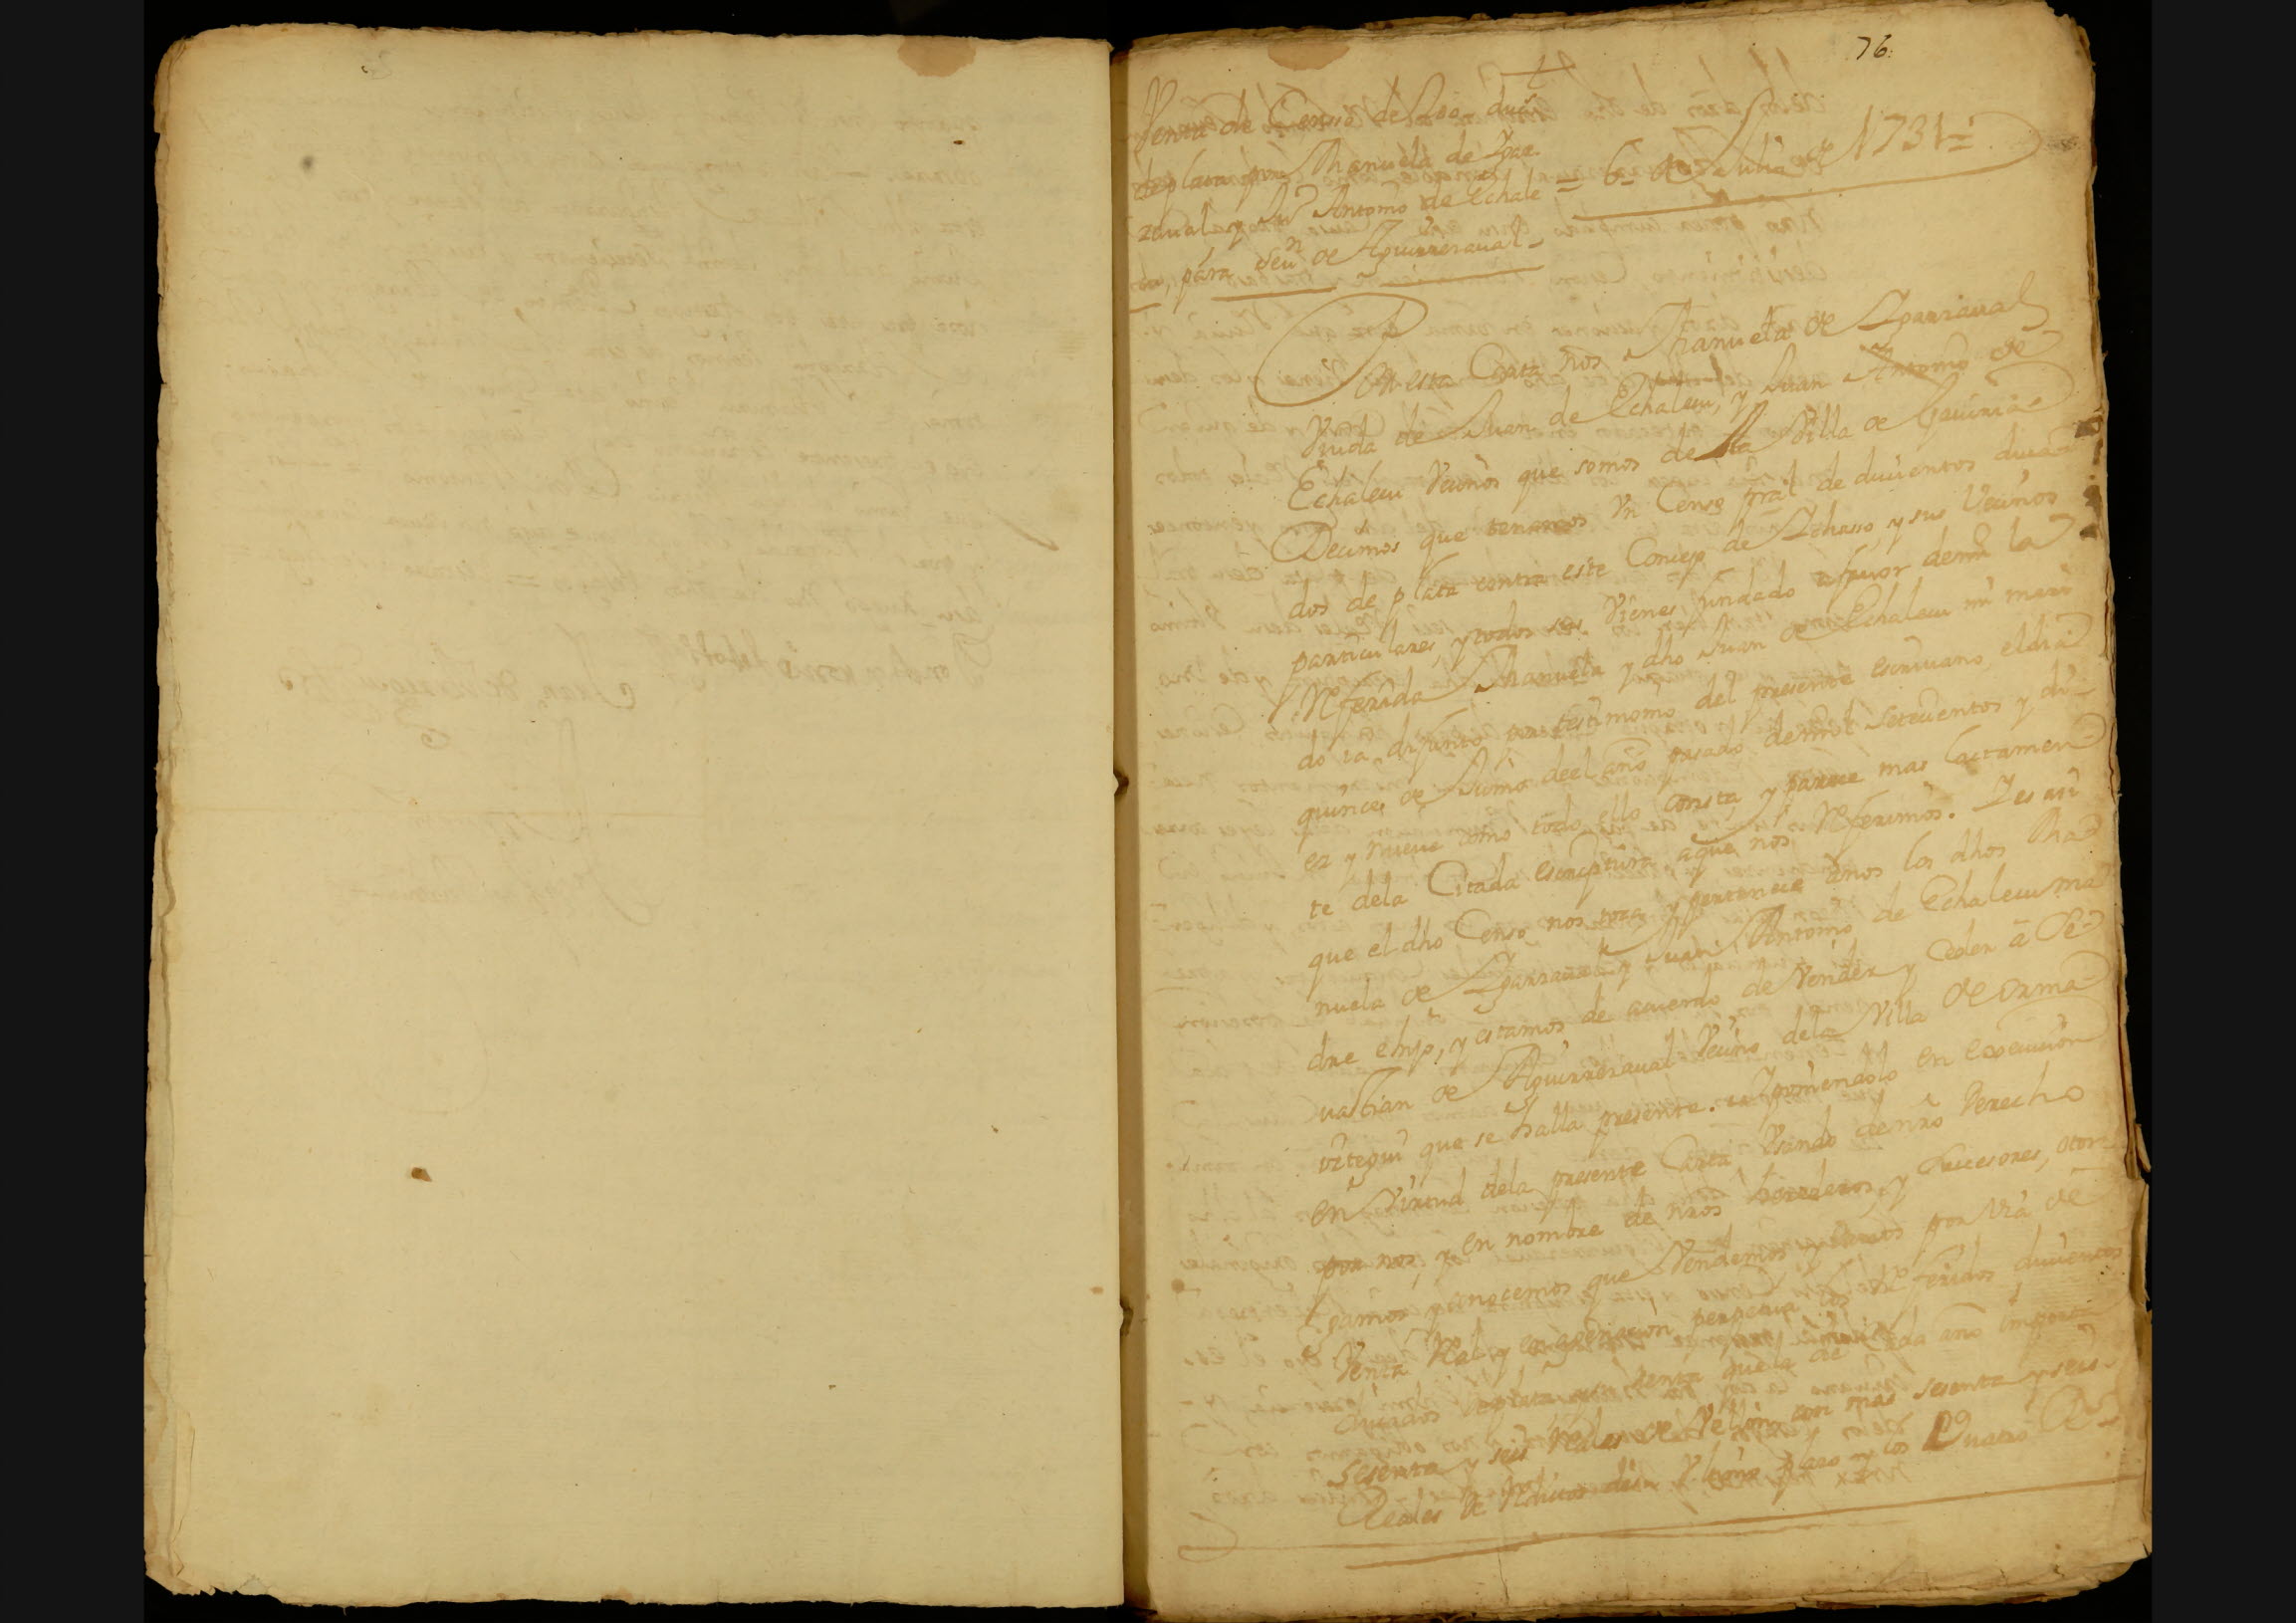 76
Venta de Censo de 200 duºs
de plata por Manuela de Ygar
zaual y Juº Antonio de Echale
cu, para Seuⁿ de Aguirrezaual
= 6 de Julio de 1731 =
Por esta Carta nos Manuela de Ygarzaual
Viuda de Juan de Echalecu, y Juan Antonio de
Echalecu Vecinos que somos de la Villa de Gauiria
Decimos que tenemos Vn Censo pral de ducientos duca
dos de plata contra este Concejo de Ychasso, y sus Vecinos
particulares, y todos sus Vienes, fundado a fauor de mi la
Referida Manuela y dho Juan de Echalecu mi mari
do ia difunto por testimonio del presente escriuano el dia
quince de Junio de el año pasado de mil Setecientos y di
ez y nueue como todo ello consta, y parece mas lactamen
te de la Citada escriptura, a que nos Referimos. Y es asi
que el dho Censo nos toca y pertenece a nos los dhos Ma
nuela de Ygarzaual y Juan Antonio de Echalecu ma
dre e hijo, y estamos de acuerdo de Vender y Ceder a Se
uastian de Aguirrezaual Vecino de la Villa de Orma
iztegui que se halla presente. Y poniendolo en execucion
en Virtud de la presente Carta Vsando de nro derecho
por nos, y en nombre de nros herederos, y subcesores, otor
gamos y conocemos que Vendemos, y damos por Via de
Venta Real y enagenacion perpetua los Referidos ducientos
ducados de plata con Renta que la de cada año importa
Sesenta y seis Reales de Vellon, con mas sesenta y seis
Reales de Reditos del Vltimo plazo y los Quatro Rs